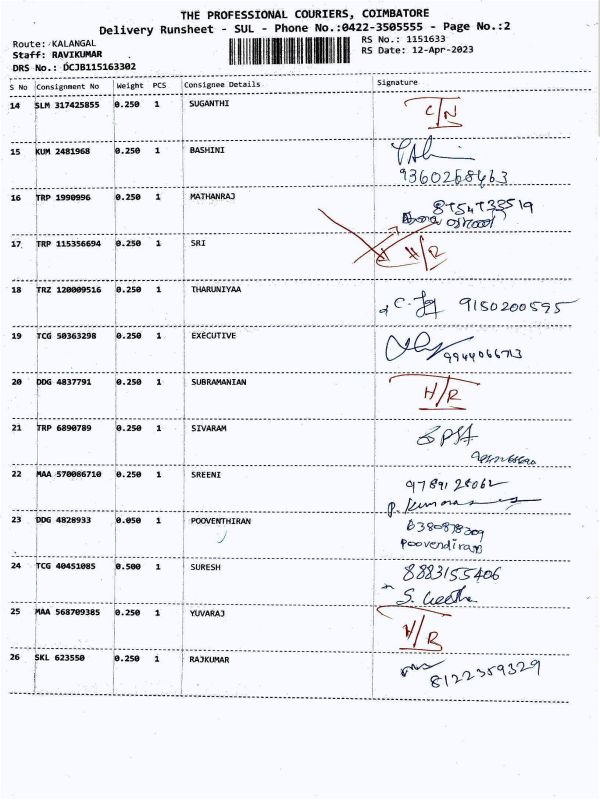 THE PROFESSIONAL COURIERS, COIMBATORE
Delivery Runsheet - SUL - Phone No.:0422-3505555 - Page No.:2
Route: KALANGAL
RS No.: 1151633
Staff: RAVIKUMAR
RS Date: 12-Apr-2023
DRS No.: DCJB115163302
S No Consignment No Weight PCS Consignee Details Signature
14 SLM 317425855 0.250 1 SUGANTHI C/N
15 KUM 2481968 0.250 1 BASHINI
9360268463
16 TRP 1990996 0.250 1 MATHANRAJ
17 TRP 115356694 0.250 1 SRI H/R
18 TRZ 120009516 0.250 1 THARUNIYAA 9150200595
19 TCG 50363298 0.250 1 EXECUTIVE
20 DDG 4837791 0.250 1 SUBRAMANIAN H/R
21 TRP 6890789 0.250 1 SIVARAM
22 MAA 570086710 0.250 1 SREENI
23 DDG 4828933 0.050 1 POOVENTHIRAN
24 TCG 40451085 0.500 1 SURESH 8883155406
S. Geetha
25 MAA 568709385 0.250 1 YUVARAJ H/R
26 SKL 623550 0.250 1 RAJKUMAR
8122359329